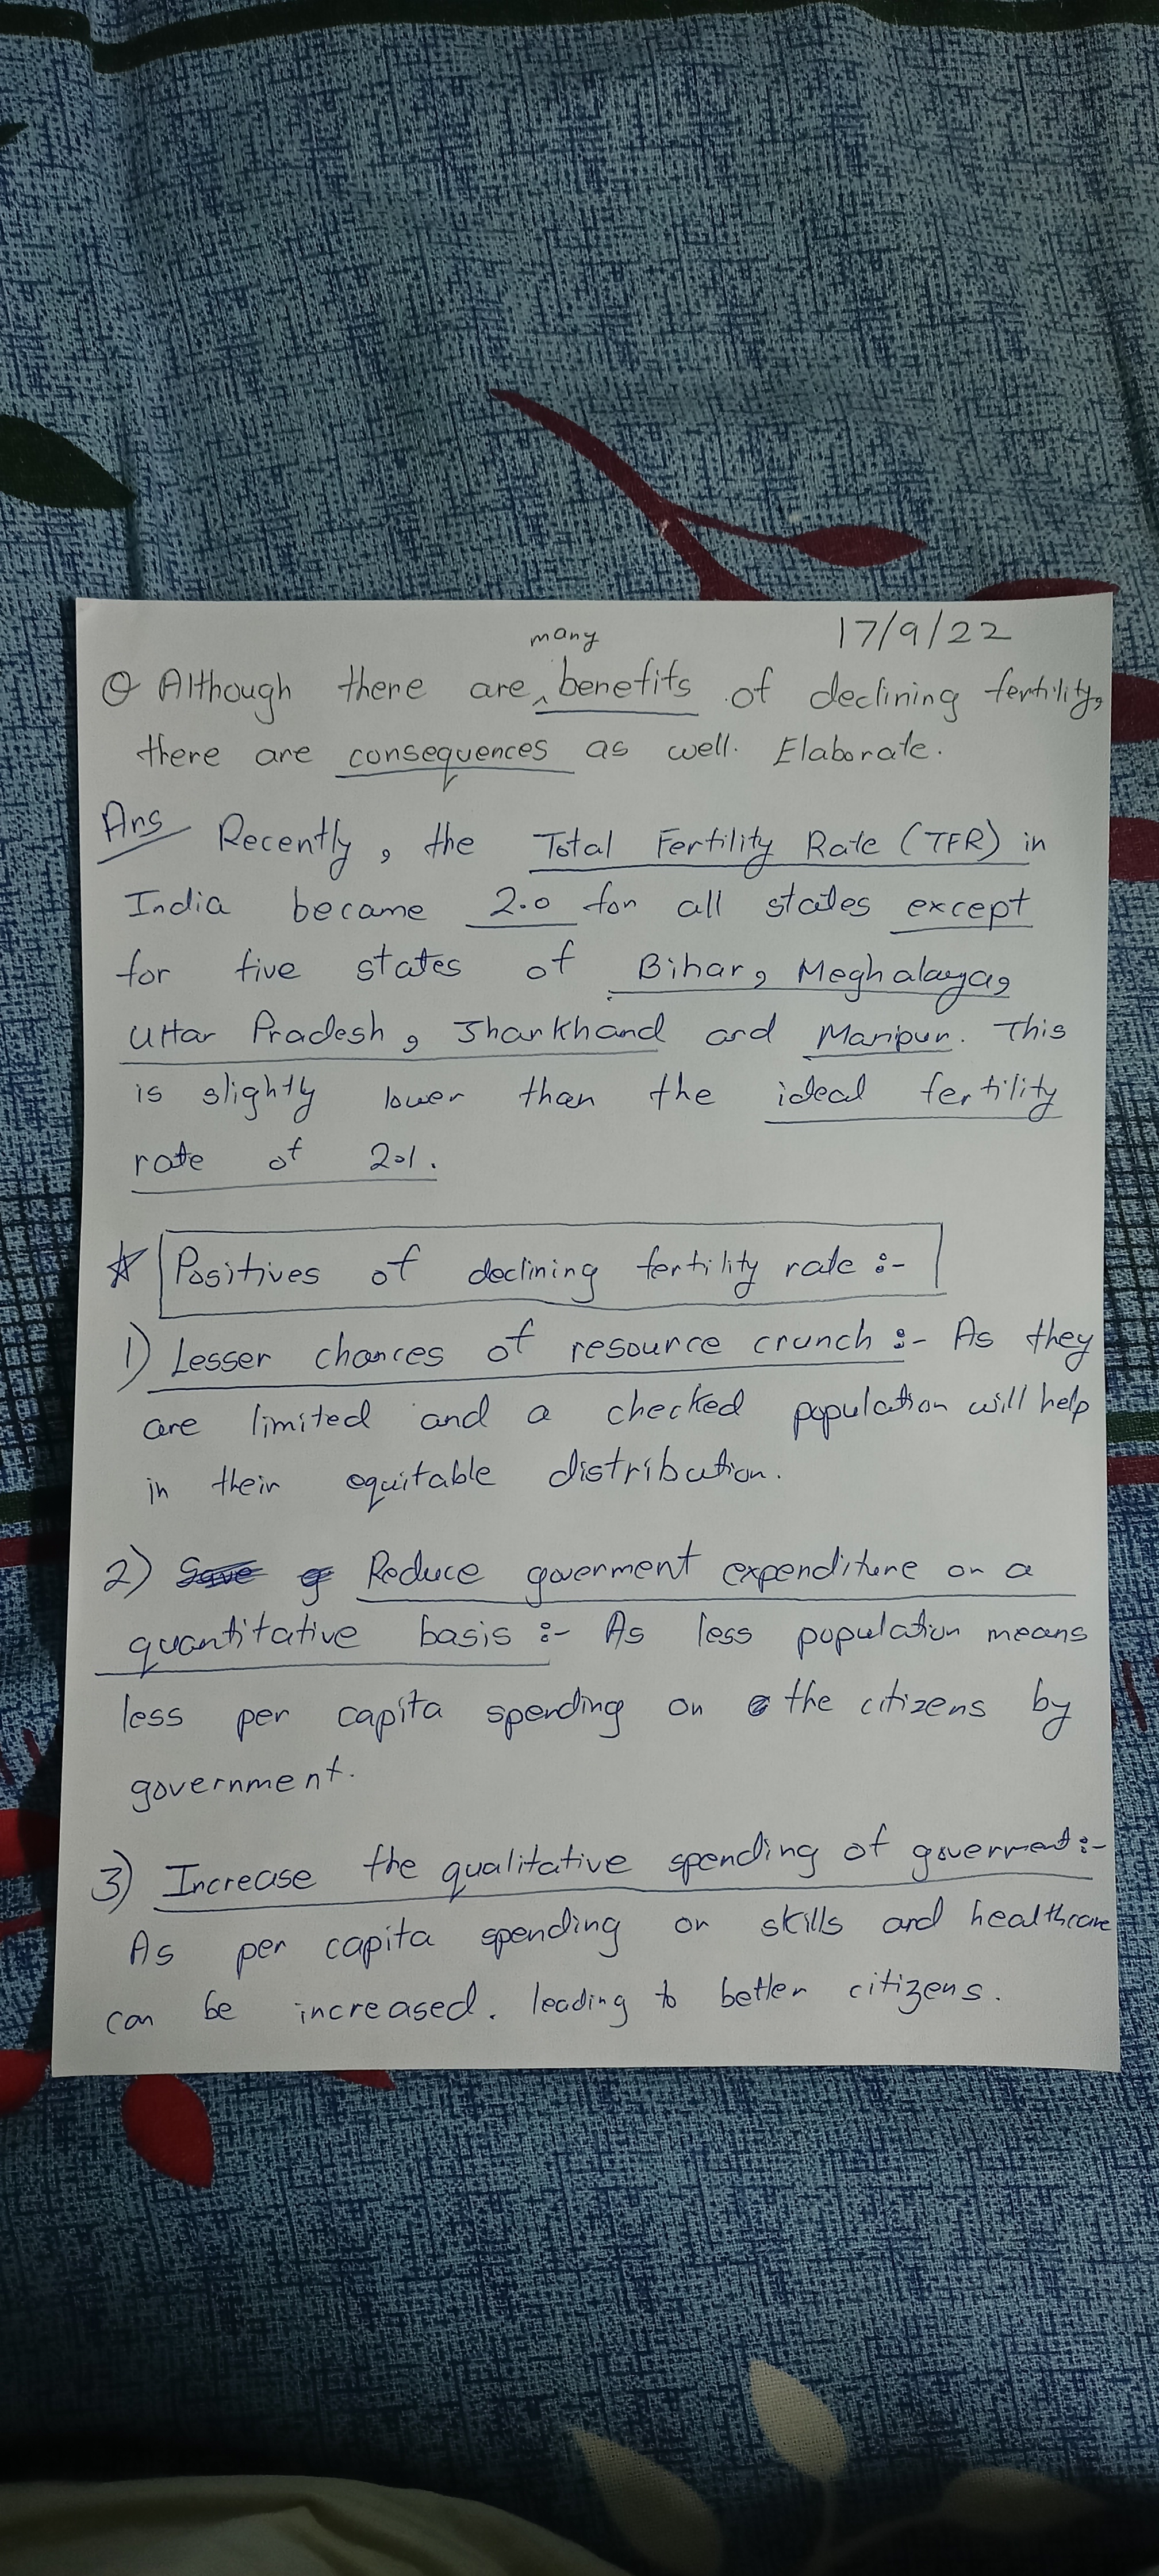 many 17/9/22
Q Although there are ^ benefits of declining fertility,
there are consequences as well. Elaborate.
Ans Recently, the Total Fertility Rate (TFR) in
India became 2.0 for all states except
for five states of Bihar, Meghalaya,
Uttar Pradesh, Jharkhand and Manipur. This
is slightly lower than the ideal fertility
rate of 2.1.
☆ Positives of declining fertility rate :-
1) Lesser chances of resource crunch :- As they
are limited and a checked population will help
in their equitable distribution.
2) Reduce goverment expenditure on a
quantitative basis :- As less population means
less per capita spending on the citizens by
government.
3) Increase the qualitative spending of goverment :-
As per capita spending on skills and healthcare
can be increased. leading to better citizens.